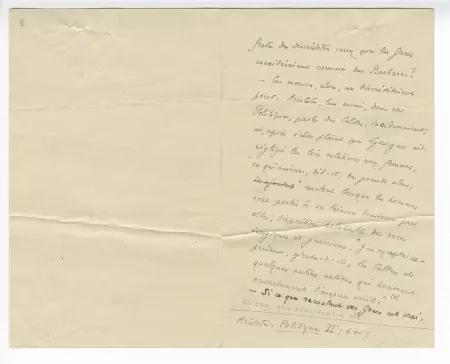 des discrédités ceux que les Grecs
considéraient comme des Barbares ?
— Ces mœurs, alors, ne discréditaient
point. Aristote, lui aussi, dans sa
Politique, parle des Celtes, incidemment,
et, après s'être plaint que Lycurgue ait
négligé les lois relatives aux femmes,
ce qui amène, dit-il, de grands abus,
"surtout lorsque les hommes
sont portés à se laisser dominer par
elles, disposition habituelle des races
énergiques et guerrières. J'en excepte ce-
pendant, ajoute-t-il, les Celtes et
quelques autres nations qui honorent
ouvertement l'amour viril." (1)
— Si ce que racontent vos Grecs est vrai,
Aristote – Politique II; 6 et 7.